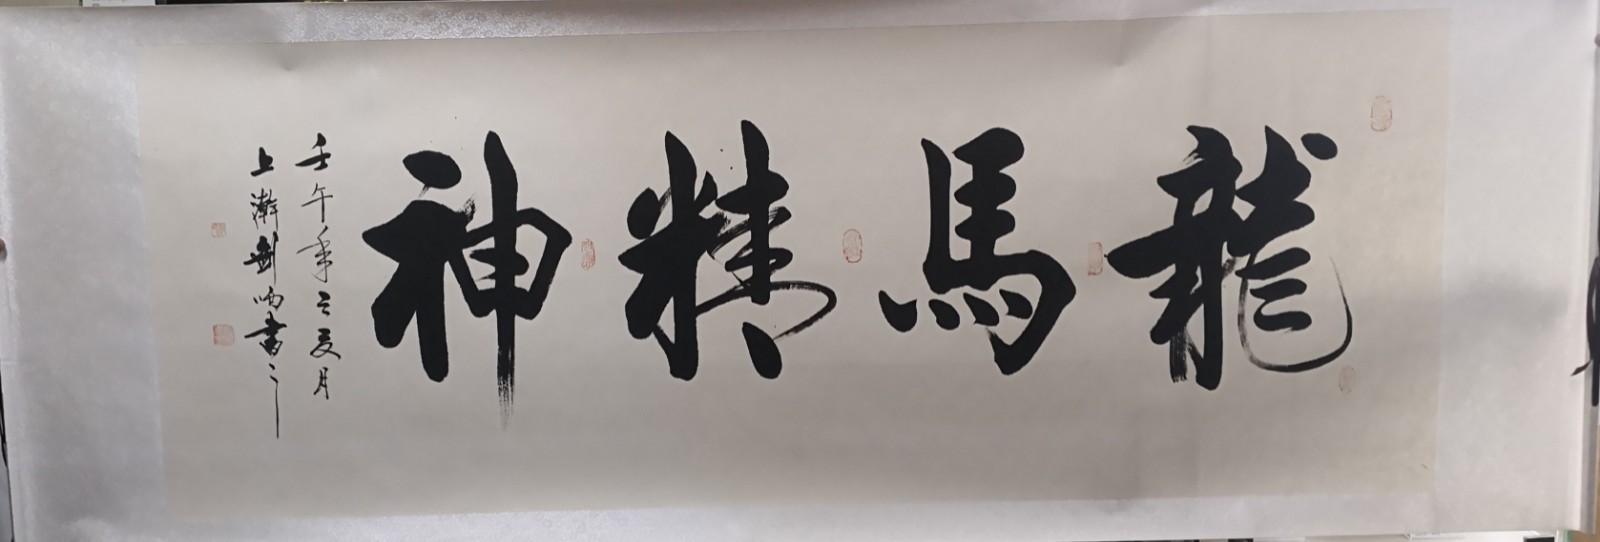 龍馬精神
壬午年之夏月
上澣剑鸣書之